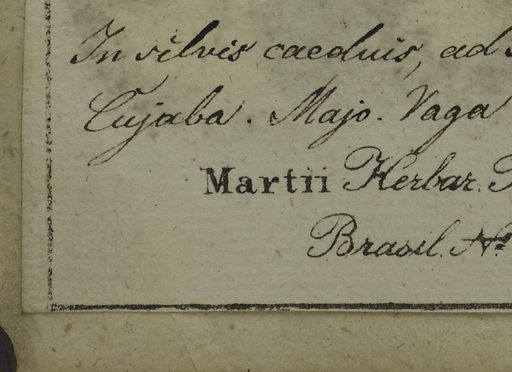 In silvis caeduis, ad
Cujaba. Majo. Vaga
Martii Herbar.
Brasil. Nº